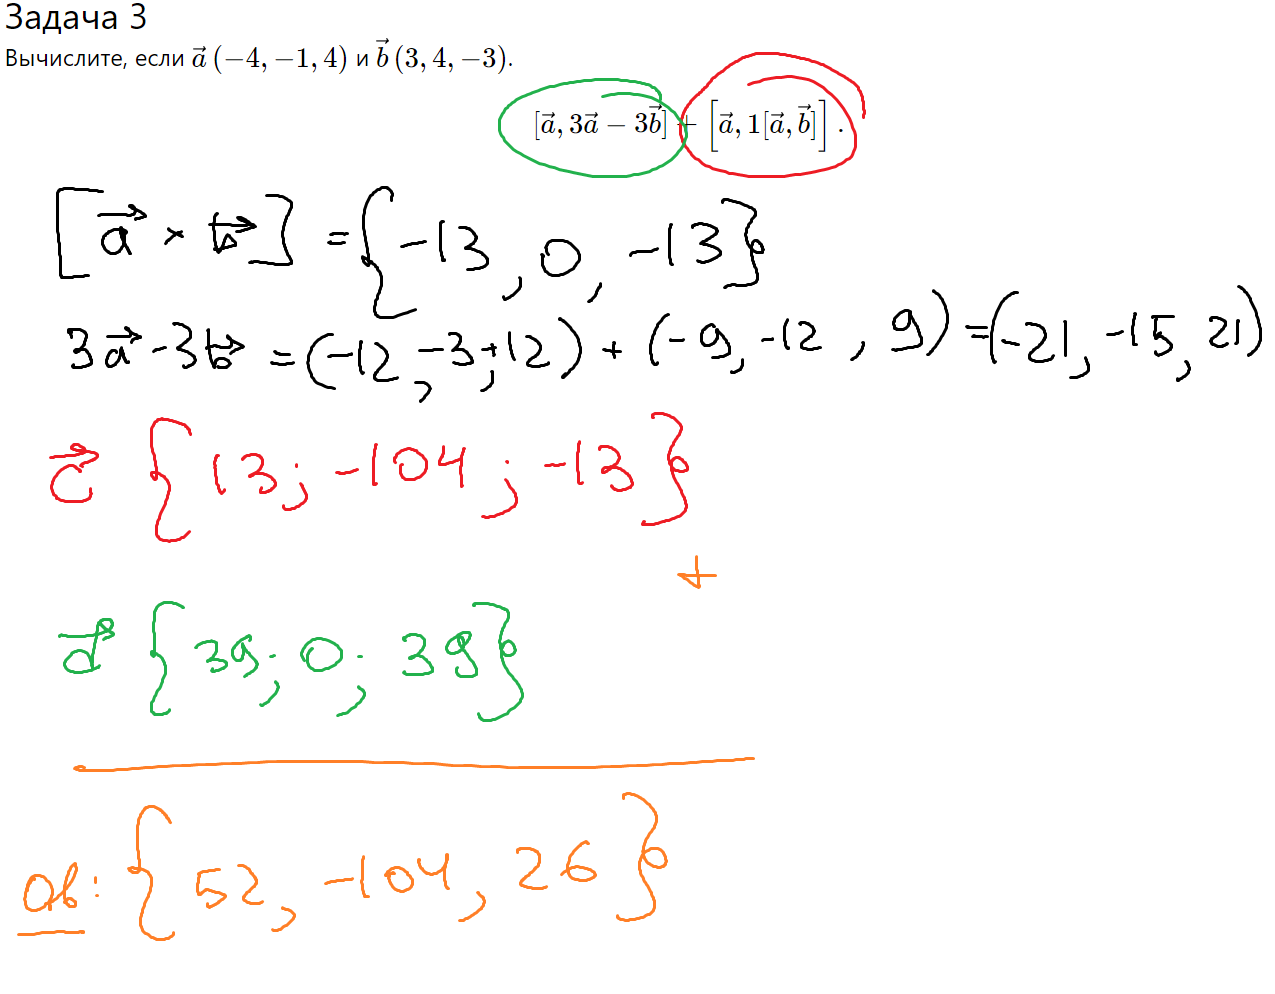 Задача 3
Вычислите, если \vec{a} (−4, −1, 4) и \vec{b} (3, 4, −3).
[\vec{a}, 3\vec{a} − 3\vec{b}] + [\vec{a}, 1[\vec{a}, \vec{b}]] .
[\vec{a} × \vec{b}] = {-13, 0, -13}
3\vec{a} - 3\vec{b} = (-12, -3, +12) + (-9, -12, 9) = (-21, -15, 21)
\vec{c} {13; -104; -13}
+
\vec{d} {39; 0; 39}
Ов: {52, -104, 26}